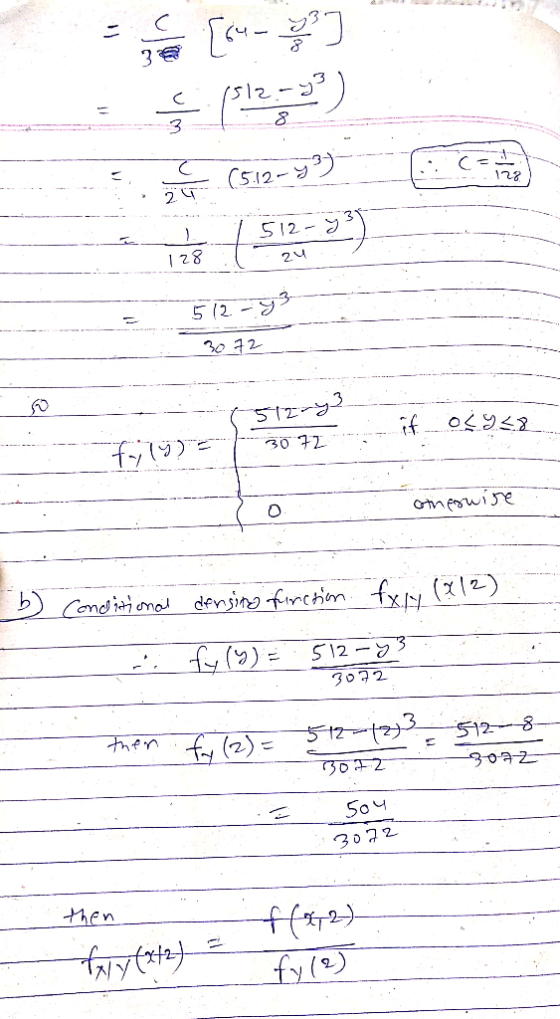 = C/3 [64 - y³/8]
= C/3 (512 - y³ / 8)
= C/24 (512 - y³) [∴ C = 1/128]
= 1/128 (512 - y³ / 24)
= 512 - y³ / 3072
so f_Y(y) = { 512 - y³ / 3072 if 0 ≤ y ≤ 8
0 otherwise
b) Conditional density function f_X|Y (x|2)
∴ f_Y(y) = 512 - y³ / 3072
then f_Y(2) = 512 - (2)³ / 3072 = 512 - 8 / 3072
= 504 / 3072
then
f_X|Y(x|2) = f(x,2) / f_Y(2)